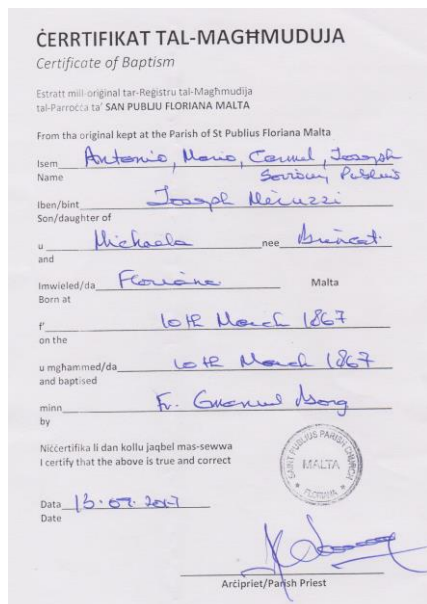 ĊERRTIFIKAT TAL-MAGĦMUDUJA
Certificate of Baptism
Estratt mill-original tar-Registru tal-Magħmudija
tal-Parroċċa ta' SAN PUBLJU FLORIANA MALTA
From tha original kept at the Parish of St Publius Floriana Malta
Isem Antonio, Mario, Carmel, Joseph
Name Publius
Iben/bint Joseph
Son/daughter of
u Michaela nee Brincat
and
Imwieled/da Floriana Malta
Born at
f' 10th March 1867
on the
u mghammed/da 10th March 1867
and baptised
minn Fr.
by
Niċċertifika li dan kollu jaqbel mas-sewwa
I certify that the above is true and correct
SAINT PUBLIUS PARISH CHURCH
MALTA
FLORIANA
Data 13.07.2017
Date
Arċipriet/Parish Priest